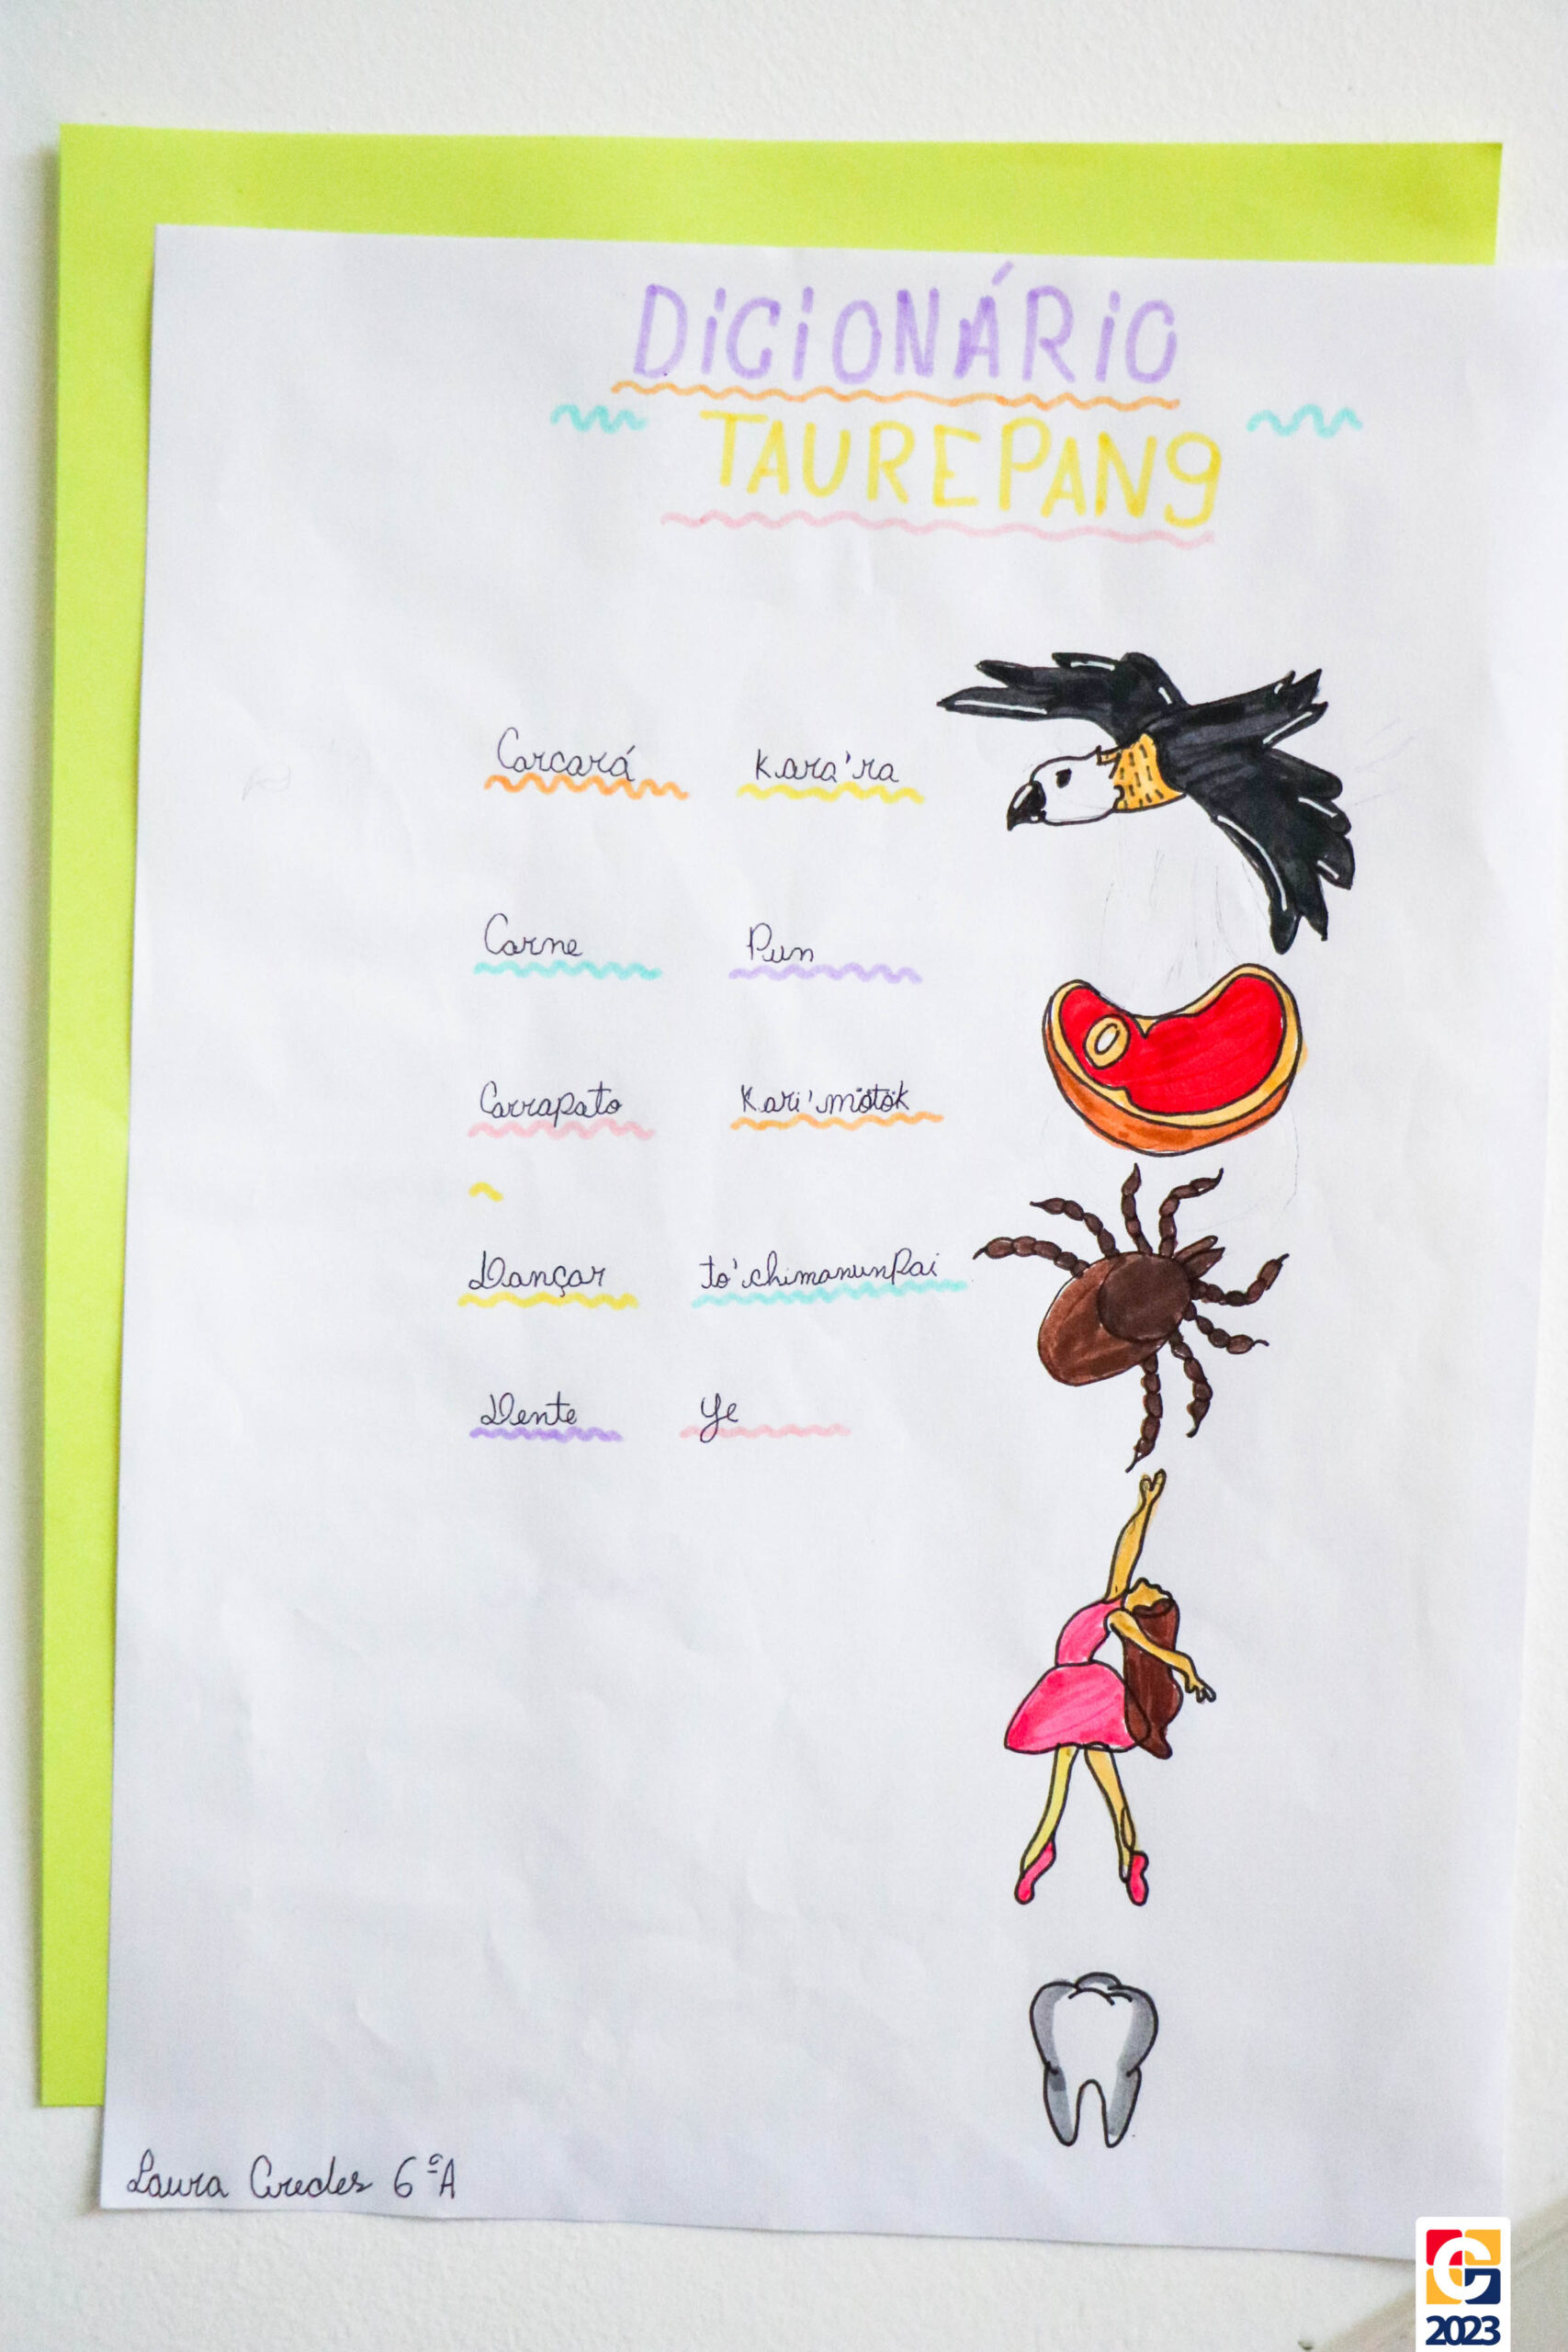 DiCiONÁRiO
TAUREPANg
Carcará Kara'ra
Carne Pun
Carrapato Kari'mötök
Dançar to'chimanunpai
Dente Ye
Laura 6ºA
G
2023